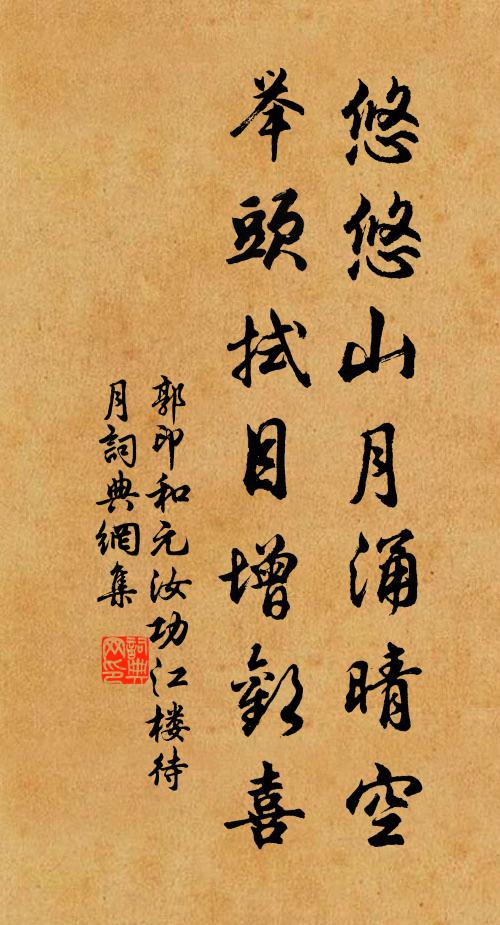 悠悠山月涌晴空
举頭拭目增歡喜
郭印和元汝功江楼待
月詞典網集
詞典网印